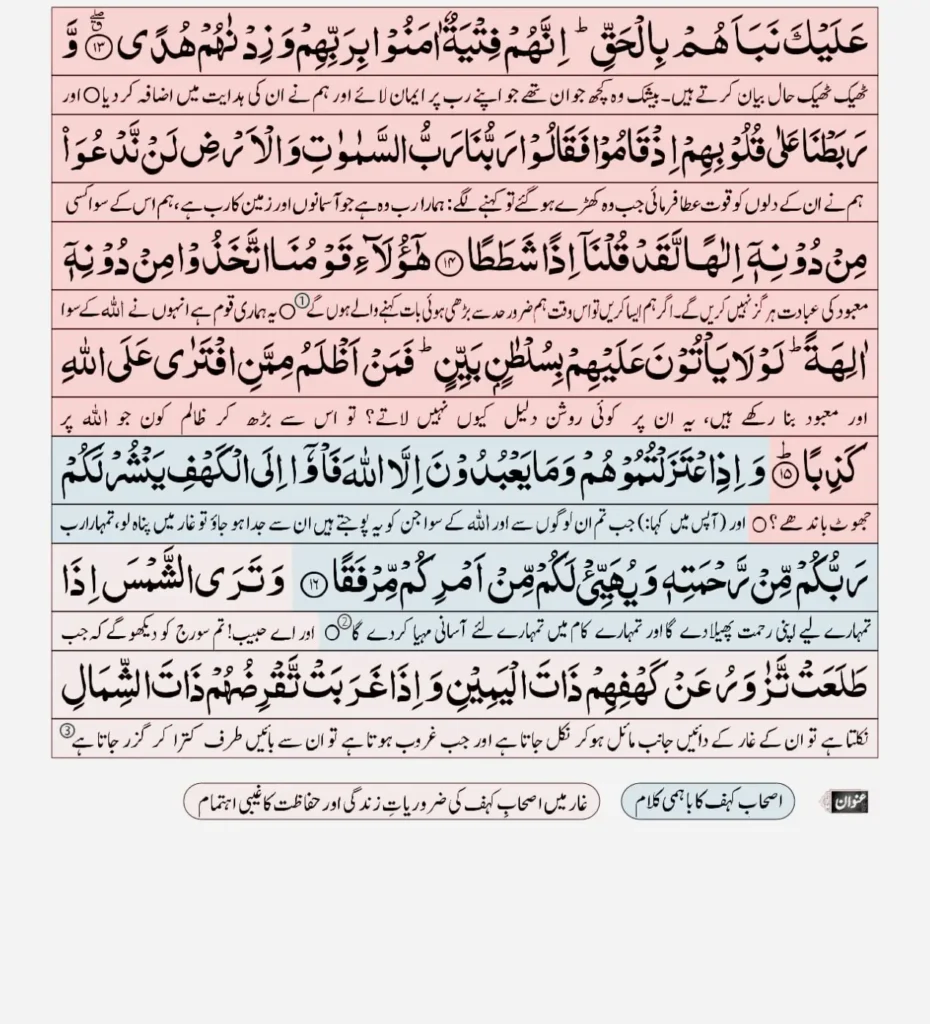 عَلَیْكَ نَبَاَهُمْ بِالْحَقِّ ؕ اِنَّهُمْ فِتْیَةٌ اٰمَنُوْا بِرَبِّهِمْ وَ زِدْنٰهُمْ هُدًى ۗۖ ﴿۱۳﴾ وَّ
ٹھیک ٹھیک حال بیان کرتے ہیں۔ بیشک وہ کچھ جوان تھے جو اپنے رب پر ایمان لائے اور ہم نے ان کی ہدایت میں اضافہ کردیا ○ اور
رَبَطْنَا عَلٰى قُلُوْبِهِمْ اِذْ قَامُوْا فَقَالُوْا رَبُّنَا رَبُّ السَّمٰوٰتِ وَ الْاَرْضِ لَنْ نَّدْعُوَاۡ
ہم نے ان کے دلوں کو قوت عطا فرمائی جب وہ کھڑے ہوگئے تو کہنے لگے: ہمارا رب وہ ہے جو آسمانوں اور زمین کا رب ہے، ہم اس کے سوا کسی
مِنْ دُوْنِهٖۤ اِلٰهًا لَّقَدْ قُلْنَاۤ اِذًا شَطَطًا ﴿۱۴﴾ هٰۤؤُلَآءِ قَوْمُنَا اتَّخَذُوْا مِنْ دُوْنِهٖۤ
معبود کی عبادت ہرگز نہیں کریں گے۔ اگر ہم ایسا کریں تو اس وقت ہم ضرور حد سے بڑھی ہوئی بات کہنے والے ہوں گے① ○ یہ ہماری قوم ہے انہوں نے اللہ کے سوا
اٰلِهَةً ؕ لَوْ لَا یَاْتُوْنَ عَلَیْهِمْ بِسُلْطٰنٍۭ بَیِّنٍ ؕ فَمَنْ اَظْلَمُ مِمَّنِ افْتَرٰى عَلَى اللّٰهِ
اور معبود بنا رکھے ہیں، یہ ان پر کوئی روشن دلیل کیوں نہیں لاتے؟ تو اس سے بڑھ کر ظالم کون جو اللہ پر
كَذِبًا ؕ ﴿۱۵﴾ وَ اِذِ اعْتَزَلْتُمُوْهُمْ وَ مَا یَعْبُدُوْنَ اِلَّا اللّٰهَ فَاْوٗۤا اِلَى الْكَهْفِ یَنْشُرْ لَكُمْ
جھوٹ باندھے؟ ○ اور (آپس میں کہا:) جب تم ان لوگوں سے اور اللہ کے سوا جن کو یہ پوجتے ہیں ان سے جدا ہوجاؤ تو غار میں پناہ لو، تمہارا رب
رَبُّكُمْ مِّنْ رَّحْمَتِهٖ وَ یُهَیِّئْ لَكُمْ مِّنْ اَمْرِكُمْ مِّرْفَقًا ﴿۱۶﴾ وَ تَرَى الشَّمْسَ اِذَا
تمہارے لیے اپنی رحمت پھیلا دے گا اور تمہارے کام میں تمہارے لئے آسانی مہیا کردے گا② ○ اور اے حبیب! تم سورج کو دیکھو گے کہ جب
طَلَعَتْ تَّزٰوَرُ عَنْ كَهْفِهِمْ ذَاتَ الْیَمِیْنِ وَ اِذَا غَرَبَتْ تَّقْرِضُهُمْ ذَاتَ الشِّمَالِ
نکلتا ہے تو ان کے غار کے دائیں جانب مائل ہوکر نکل جاتا ہے اور جب غروب ہوتا ہے تو ان سے بائیں طرف کترا کر گزر جاتا ہے③
عنوان اصحاب کہف کا باہمی کلام غار میں اصحابِ کہف کی ضروریاتِ زندگی اور حفاظت کا غیبی اہتمام